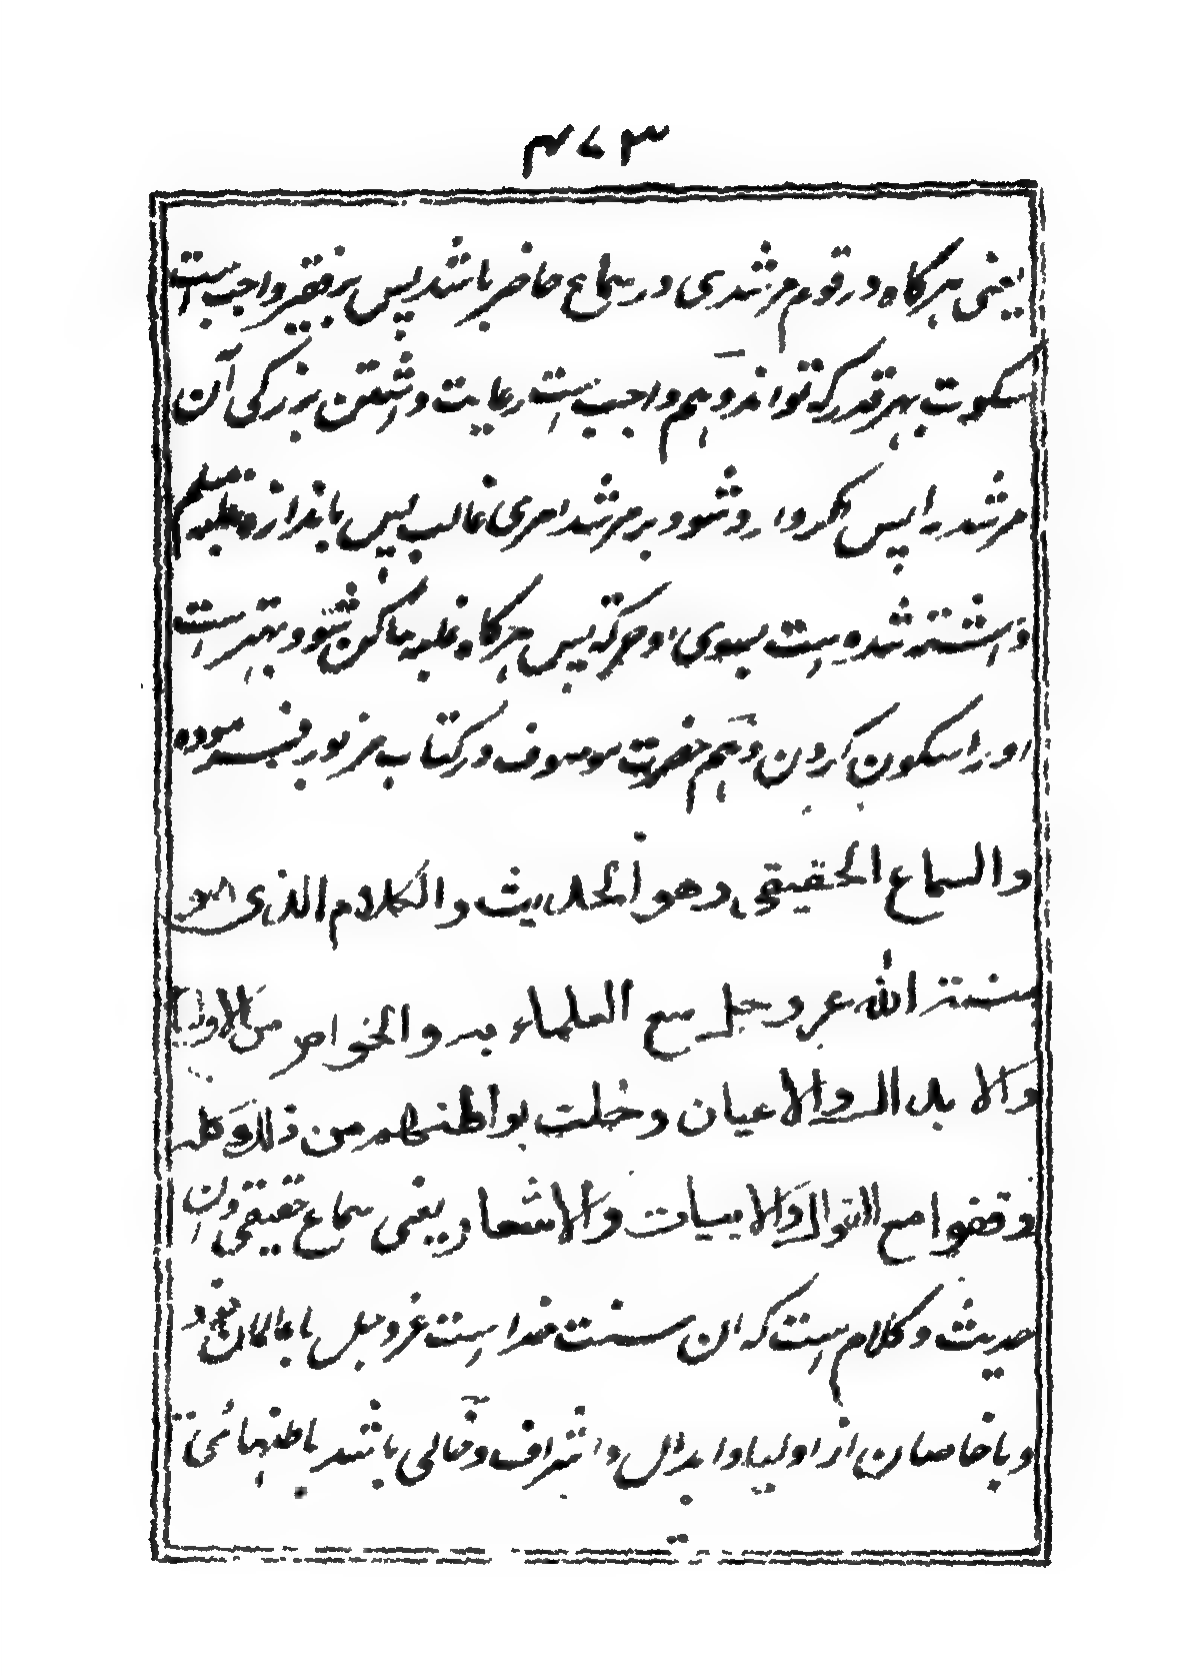 ۴۷۳
یعنی هرکاه در قوم مرشدی در سماع حاضر باشد پس بر فقیر واجب است
سکوت بهر قدر که تواند و هم واجب است رعایت داشتن بزرکی آن
مرشد را پس اکر وارد شود بر مرشد امری غالب پس باندازه غلبه مسلم
داشته شده است بسوی او حرکه پس هرکاه غلبه ساکن شود بهتر است
او را سکون کردن و هم حضرت موصوف در کتاب مزبور فرموده
والسماع الحقیقی وهو الحدیث والکلام الذی هو
سنة الله عز وجل مع العلماء به والخواص من الاولیا
والابدال والاعیان وخلت بواطنهم من ذلك کله
وقفوا مع القوال والابیات والاشعار یعنی سماع حقیقی وان
حدیث وکلام است که ان سنت خدا است عز وجل با عالمان بخود
و با خاصان از اولیا و ابدال و اشراف و خالی باشد باطنهائی